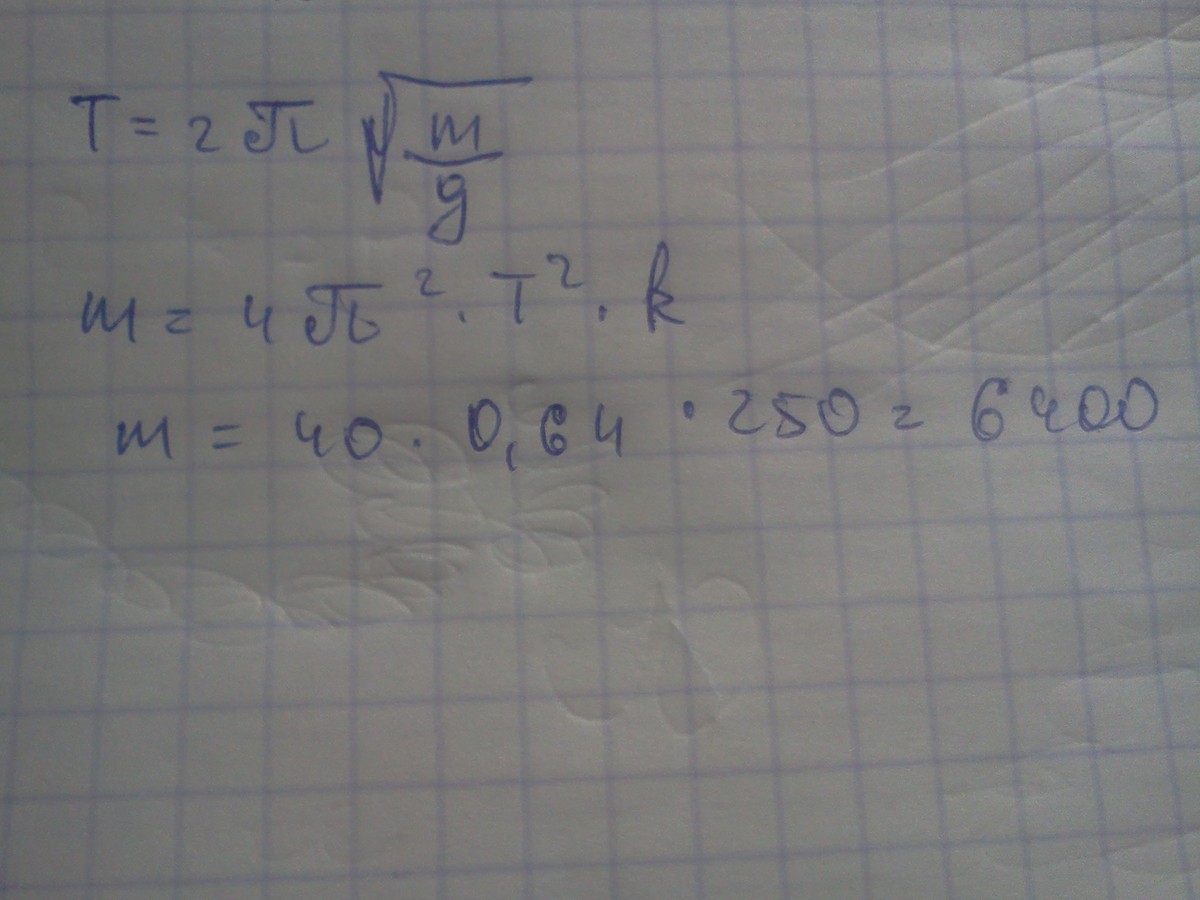 T = 2π √(m/g)
m = 4π² · T² · k
m = 40 · 0,64 · 250 = 6400